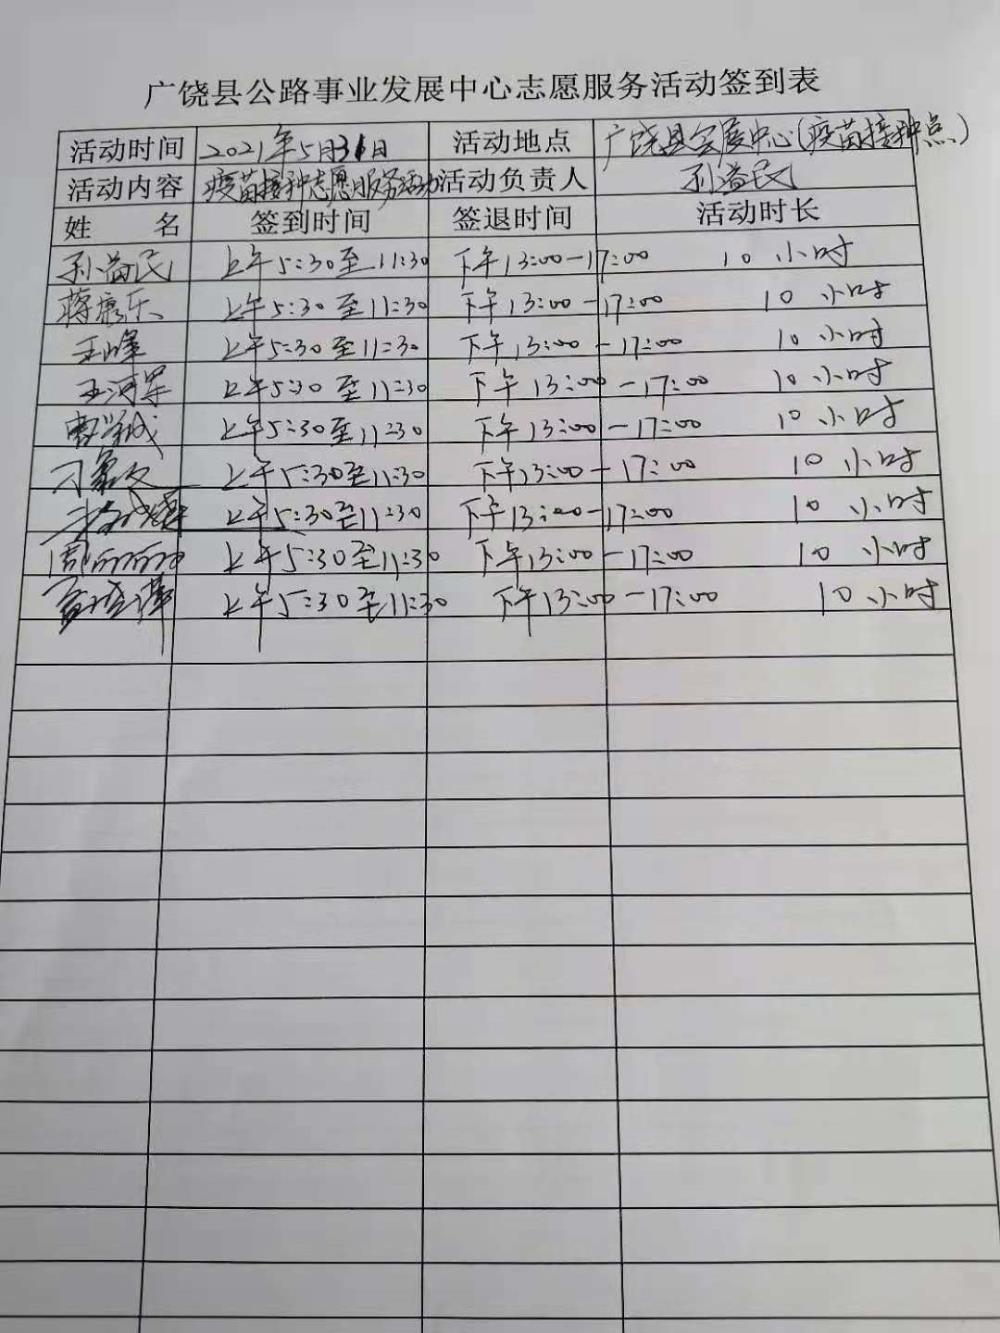 广饶县公路事业发展中心志愿服务活动签到表
活动时间 2021年5月31日 活动地点 广饶县会展中心(疫苗接种点)
活动内容 疫苗接种志愿服务活动 活动负责人 孙益民
姓 名 签到时间 签退时间 活动时长
孙益民 上午5:30至11:30 下午13:00-17:00 10 小时
蒋康乐 上午5:30至11:30 下午13:00-17:00 10 小时
王峰 上午5:30至11:30 下午13:00-17:00 10 小时
王河军 上午5:30至11:30 下午13:00-17:00 10 小时
上午5:30至11:30 下午13:00-17:00 10 小时
上午5:30至11:30 下午13:00-17:00 10 小时
上午5:30至11:30 下午13:00-17:00 10 小时
周丽丽 上午5:30至11:30 下午13:00-17:00 10 小时
上午5:30至11:30 下午13:00-17:00 10 小时